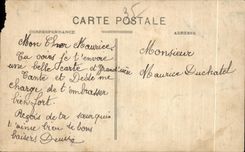 35
CARTE POSTALE
CORRESPONDANCE
ADRESSE
Mon Cher Maurice
Tu vois je t'envoie
une belle carte d'
Tante et Dédé me
charge de t'embrasser
bien fort.
Reçois de ta sœur qui
t'aime bien de bons
baisers Denise
Monsieur
Maurice Duchatel